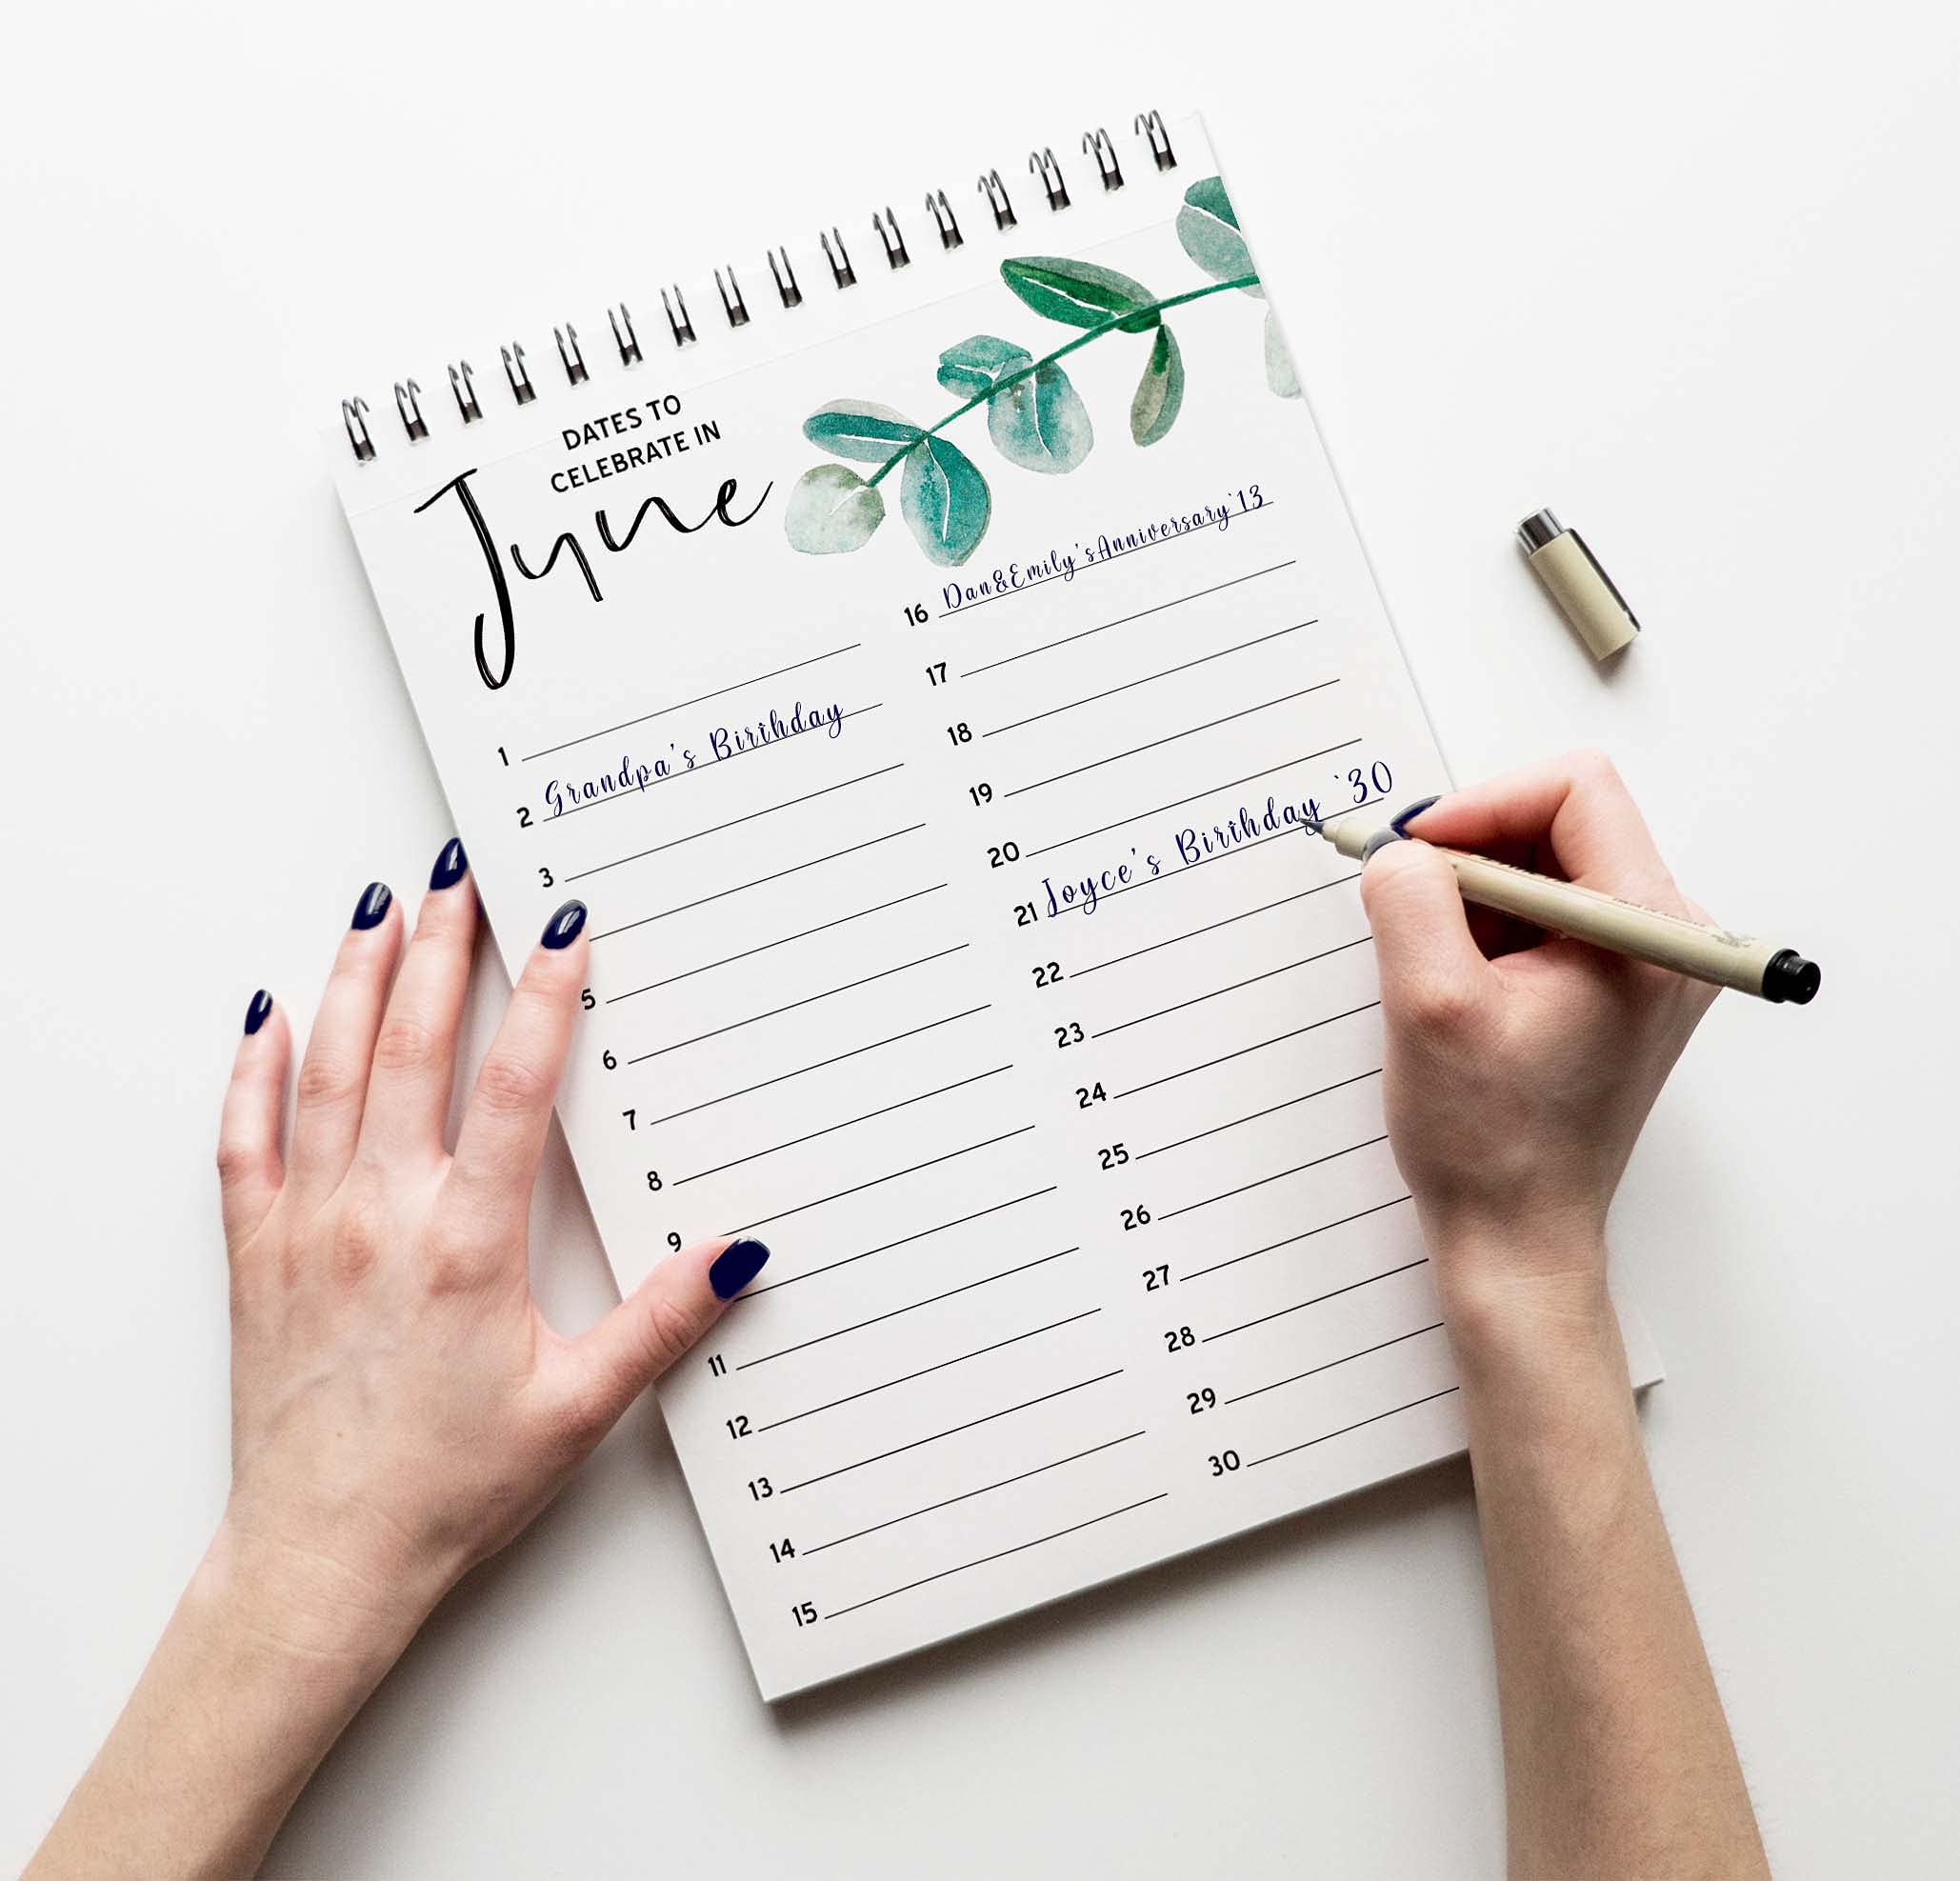 DATES TO
CELEBRATE IN
June
1
2 Grandpa's Birthday
3
5
6
7
8
9
11
12
13
14
15
16 Dan&Emily's Anniversary '13
17
18
19
20
21 Joyce's Birthday '30
22
23
24
25
26
27
28
29
30